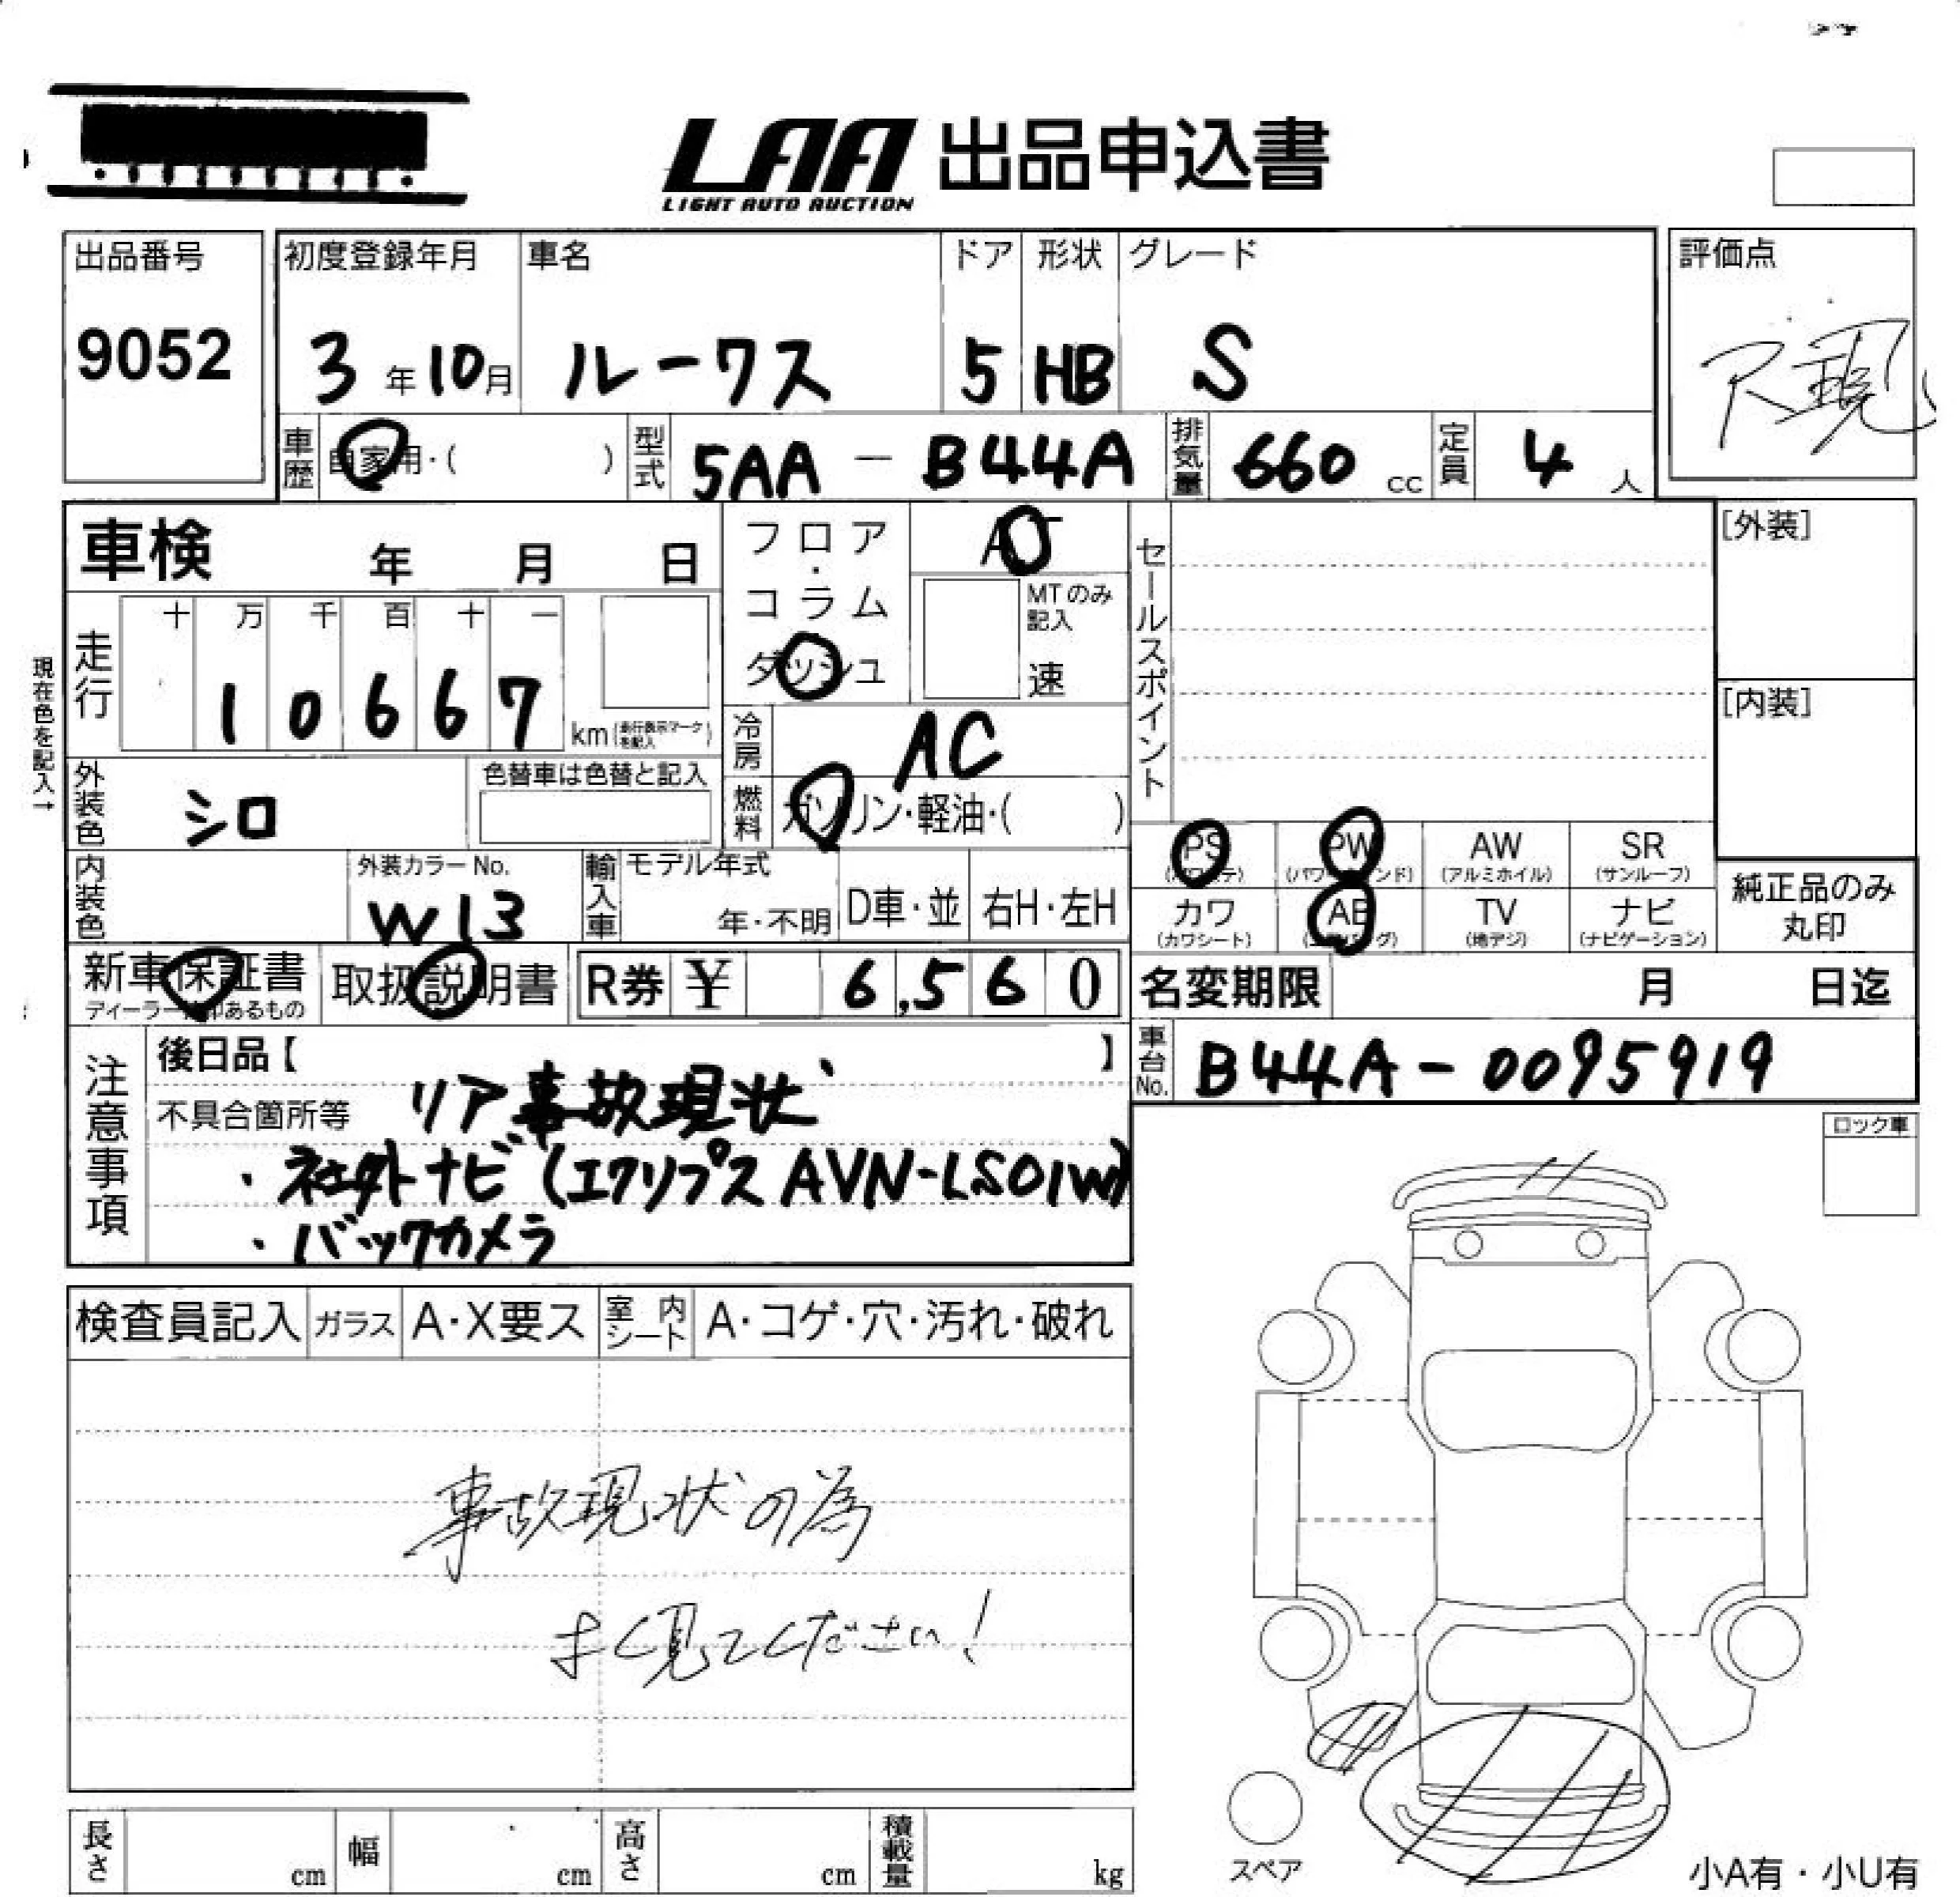 LAA 出品申込書
LIGHT AUTO AUCTION
出品番号
9052
初度登録年月
3年10月
車名
ルークス
ドア
5
形状
HB
グレード
S
評価点
車歴
自家用・( )
型式
5AA-B44A
排気量
660 cc
定員
4人
車検 年 月 日
フロア・コラム
ダッシュ
AT
MTのみ記入
速
セールスポイント
[外装]
[内装]
現在色を記入→
走行
十 万 千 百 十 一
1 0 6 6 7
km(走行表示マークを記入)
冷房
AC
外装色
シロ
色替車は色替と記入
燃料
ガソリン・軽油・( )
PS
PW
AW
(アルミホイル)
SR
(サンルーフ)
カワ
(カワシート)
AB
TV
(地デジ)
ナビ
(ナビゲーション)
純正品のみ
丸印
内装色
外装カラーNo.
W13
輸入車
モデル年式
年・不明
D車・並
右H・左H
新車保証書
取扱説明書
R券 ¥ 6,560
名変期限 月 日迄
車台No.
B44A-0095919
注意事項
後日品【 】
不具合箇所等
リア事故現状
・社外ナビ(エクリプス AVN-LS01W)
・バックカメラ
ロック車
検査員記入
ガラス
A・X要ス
室内シート
A・コゲ・穴・汚れ・破れ
事故現状の為
よく見てください!
スペア
小A有・小U有
長さ cm
幅 cm
高さ cm
積載量 kg